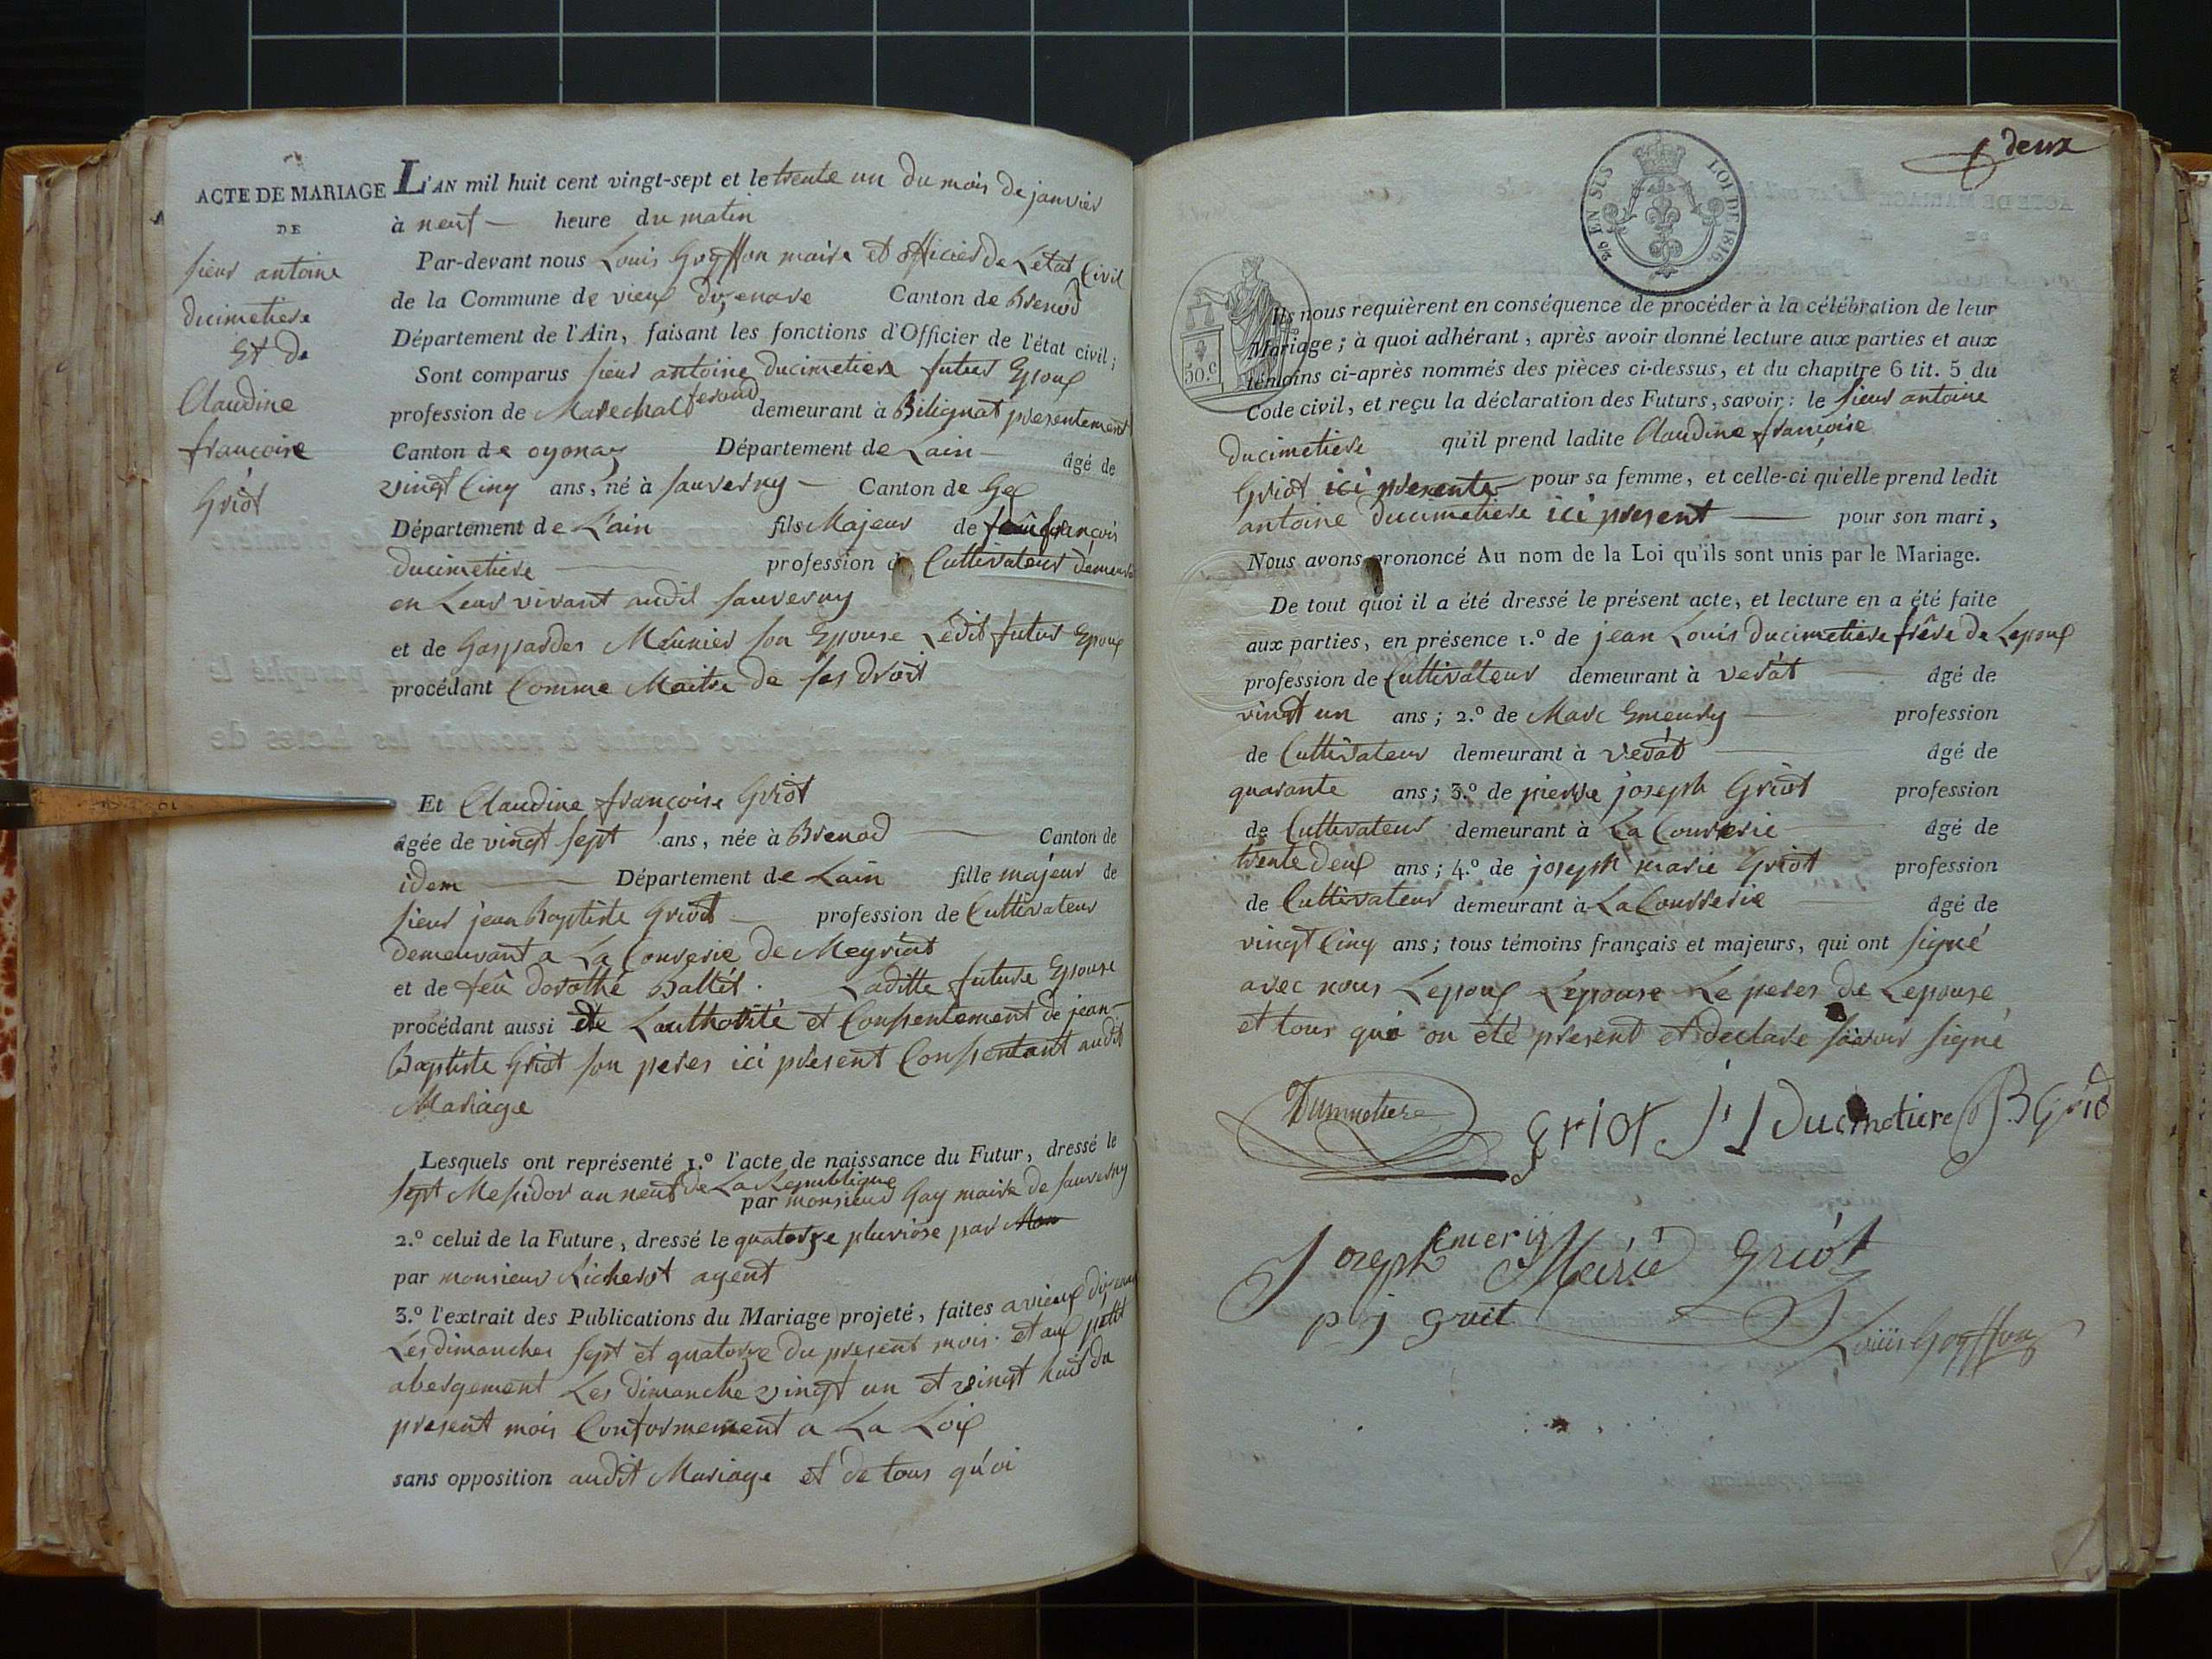 ACTE DE MARIAGE
DE
sieur antoine
ducimetiere
Et de
Claudine
françoise
Griot
L'AN mil huit cent vingt-sept et le trente un du mois de janvier
à neuf — heure du matin
Par-devant nous Louis Goyffon maire et officier de Letat Civil
de la Commune de vieux dizenave Canton de Brenod
Département de l'Ain, faisant les fonctions d'Officier de l'état civil;
Sont comparus sieur antoine ducimetiere futur Epoux
profession de Marechal ferand demeurant à Bélignat presentement
Canton de oyonaz Département de Lain — âgé de
vingt Cinq ans, né à sauverny — Canton de Gex
Département de L'ain fils Majeur de feû françois
ducimetiere — profession de Cultivateur demeurant
en Leur vivant audit sauverny
et de Gaspardes Meunier son Epouse Lédit futur Epoux
procédant Comme Maitre de ses droit
Et Claudine françoise Griot
âgée de vingt sept ans, née à Brenod — Canton de
idem — Département de Lain fille majeur de
sieur jean Baptiste Griot — profession de Cultivateur
demeurant a La Couverie de Meyriat
et de feû dorothé Ballét. Laditte future Epouse
procédant aussi de Lauthorité et Consentement de jean-
Baptiste Griot son peres ici présent Consentant audit
Mariage
Lesquels ont représenté 1.º l'acte de naissance du Futur, dressé le
sept Mesidor an neuf de La Republique
par monsieur Gay maire de sauverny
2.º celui de la Future, dressé le quatorze pluviose par
par monsieur Richerot agent
3.º l'extrait des Publications du Mariage projeté, faites a vieux dizenave
Les dimanches sept et quatorze du present mois. et aux petit
abergement Les dimanche vingt un et vingt huit du
present mois Conformement a La Loix
sans opposition audit Mariage et de tous qu'oi
deux
EN SUS LOI DE 1816
50.c
Ils nous requièrent en conséquence de procéder à la célébration de leur
Mariage; à quoi adhérant, après avoir donné lecture aux parties et aux
témoins ci-après nommés des pièces ci-dessus, et du chapitre 6 tit. 5 du
Code civil, et reçu la déclaration des Futurs, savoir: le sieur antoine
ducimetiere qu'il prend ladite Claudine françoise
Griot ici presente — pour sa femme, et celle-ci qu'elle prend ledit
antoine ducimetiere ici present — pour son mari,
Nous avons prononcé Au nom de la Loi qu'ils sont unis par le Mariage.
De tout quoi il a été dressé le présent acte, et lecture en a été faite
aux parties, en présence 1.º de jean Louis ducimetiere frêre de Lepoux
profession de Cultivateur demeurant à vesát — âgé de
vingt un ans; 2.º de Marc Emeury — profession
de Cultivateur demeurant à vesát — âgé de
quarante ans; 3.º de pierre joseph Griot profession
de Cultivateur demeurant à La Couverie — âgé de
trente deux ans; 4.º de joseph marie Griot profession
de Cultivateur demeurant à La Couverie — âgé de
vingt Cinq ans; tous témoins français et majeurs, qui ont signé
avec nous Lepoux Lépouse Le peres de Lepouse
et tous qui on été present et declare savoir signé
Ducimetiere Griot J L Ducimetiere J B Griot
Emeriy
Joseph Marie Griot
p j griot
Louis Goyffon